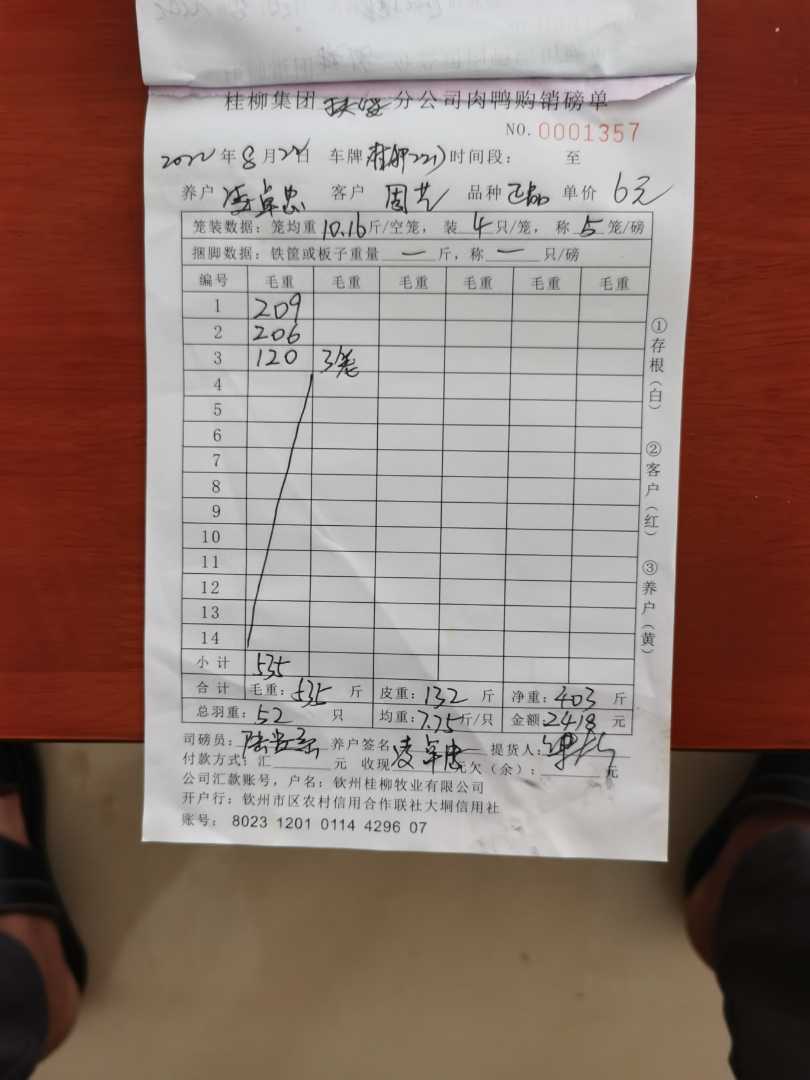 桂柳集团 分公司肉鸭购销磅单
NO.0001357
2022年8月22日 车牌 时间段： 至
养户 凌卓忠 客户 周艺 品种 正品 单价 6元
笼装数据：笼均重10.16斤/空笼，装4只/笼，称5笼/磅
捆脚数据：铁筐或板子重量一斤，称一只/磅
编号 毛重 毛重 毛重 毛重 毛重 毛重
1 209
2 206
3 120 3笼
4
5
6
7
8
9
10
11
12
13
14
小计 535
合计 毛重：535斤 皮重：132斤 净重：403斤
总羽重：52只 均重：7.75斤/只 金额：2418元
司磅员： 养户签名 凌卓忠 提货人：
付款方式：汇 元 收现 元欠（余）： 元
公司汇款账号，户名：钦州桂柳牧业有限公司
开户行：钦州市区农村信用合作联社大垌信用社
账号：8023 1201 0114 4296 07
①存根（白）
②客户（红）
③养户（黄）